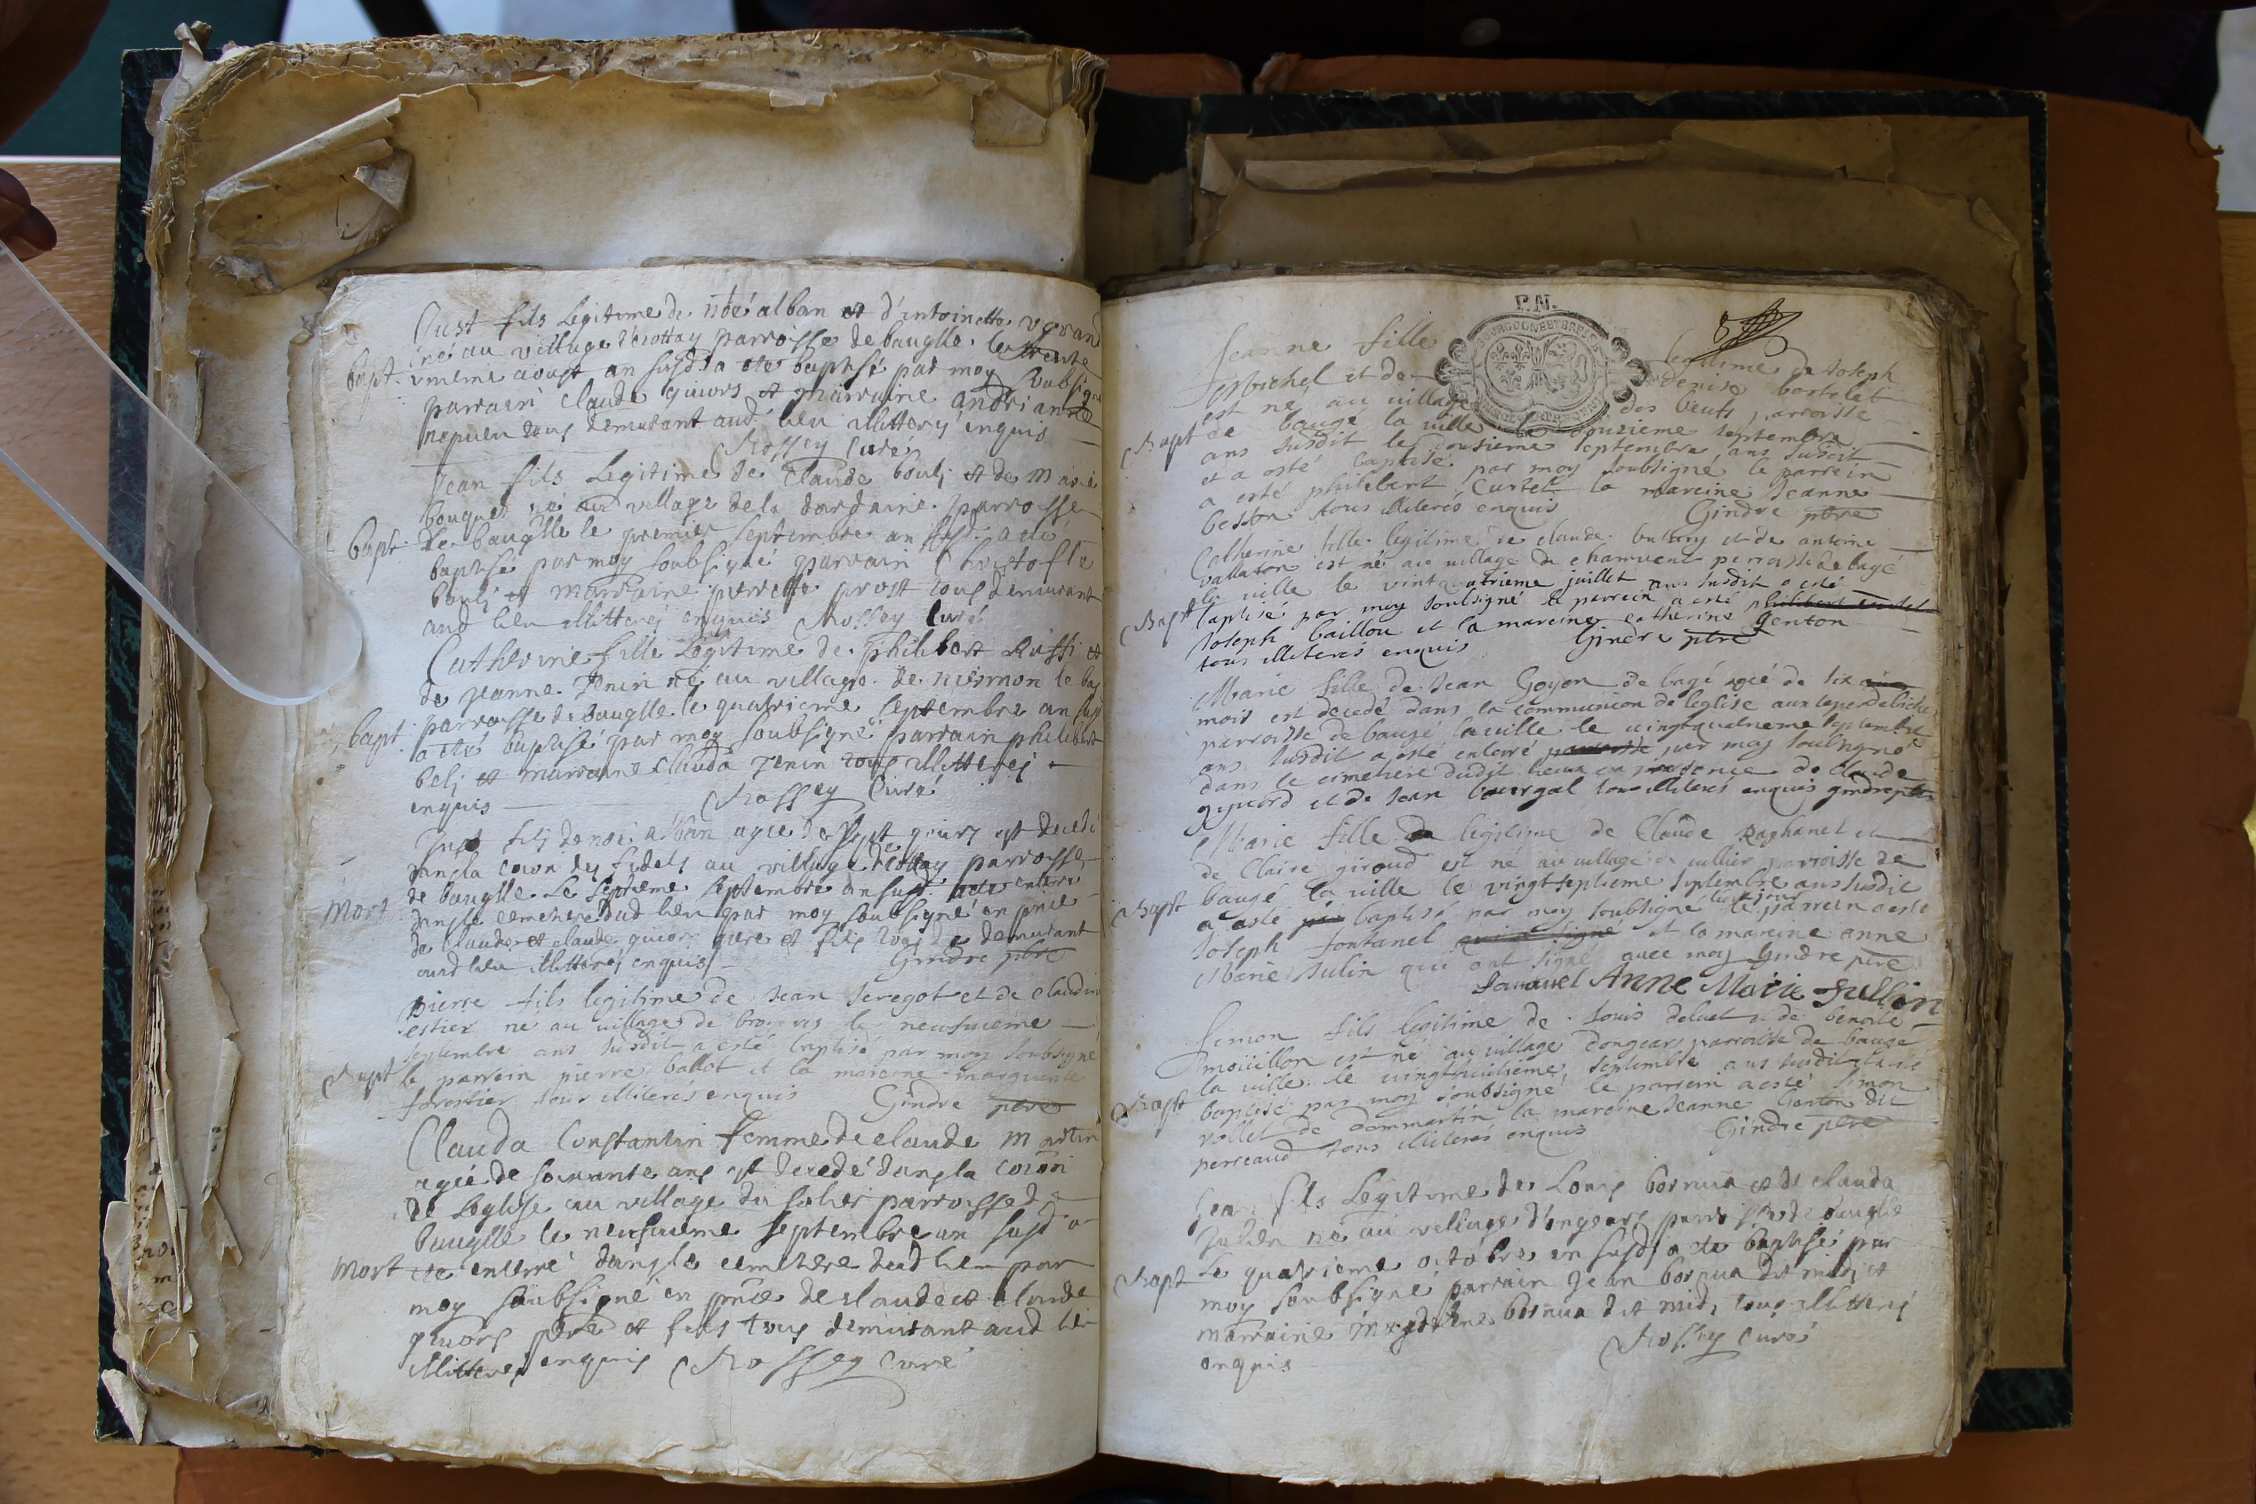 Just fils Legitime de noé alban et d'entoinette
né au village parroisse de bauglle. le trente
bapt. unieme aoust an susd. a ete baptisé par moy soubsigné
parrain claude guiors et marraine andrianne
nepueu tous demurant aud. lieu illitterez enquis
Rossey Curé
Jean fils Legitime de Claude bouli et de Marie
bouques né au village dela dardaine. parroisse
bapt. de bauglle le premier septembre an susd. a eté
baptisé par moy soubsigné parrain Christofle
bouli et marraine pierette provst tous demurant
aud lieu illitterez enquis Rossey Curé
Catherine fille Legitime de philibert Ruffi et
de jeanne. Jenin né au village. de niermon le bas
bapt. parroisse de bauglle. le quatrieme septembre an susd
a eté baptisé par moy soubsigné parrain philibert
beli et marraine Clauda Jenin tous illitterez
enquis Rossey Curé
Just fils de noé alban agée de sept jours est decedé
dans la coion des fideles au village parroisse
de bauglle. Le septieme septembre an susd. a ete enterré
mort dans le cemetiere dud lieu par moy soubsigné en pnce
de Claude et claude guiors pere et fils tous de demurant
aud lieu illitterez enquis Gindre pbre
pierre fils legitime de Jean seregot et de claudine
estier né au village de le neufvieme
septembre ans susdit a esté baptisé par moy soubsigné
Bapt le parrein pierre ballot et la mareine marguerite
forestier tous illiterés enquis Gindre pbre
Clauda Constantin femme de claude martin
agée de soixante ans est decedé dans la coion
de Leglise au village du parroisse de
bauglle le neufvieme septembre an susd a
mort ete enterré dans le cemetiere dud lieu par
moy soubsigné en pnce de claude et claude
guiors pere et fils tous demurant aud lieu
illitterez enquis Rossey Curé
P.N.
Jeanne fille legitime de Joseph
michel et de denise bertelet
est né au village des beufs parroisse
Bapt de baugé la ville le douzieme septembre
ans susdit le septembre ans susdit
et a esté baptisé par moy soubsigné le parrein
a esté philibert Curtet la mareine Jeanne
besson tous illiterés enquis Gindre pbre
Catherine fille legitime de claude. et de antoine
vallaton est né au village de chamvent perroisse de bagé
la ville le vintquatrieme juillet ans susdit a esté
Bapt baptisé par moy soubsigné le parrein a esté philibert curtet
Joseph baillou et la mareine catherine genton
tous illiterés enquis Gindre pbre
Marie fille de Jean Goyon de bagé agée de six ans
mois est decedé dans la communion de leglise aux
parroisse de baugé laville le vingtquatrieme septembre
ans susdit a esté enterré par moy soubsigné
dans le cimetiere dudit lieux en presence de claude
et de Jean tous illiterés enquis gindre pbre
Marie fille de legitime de Claude Raphanel et
de Claire giroud est né au village de parroisse de
Bapt baugé la ville le vingtseptieme septembre ans susdit
a esté baptisé par moy soubsigné ledit jour le parrein a esté
Joseph fontanel qui a signé et la mareine anne
Marie Julin qui ont signé avec moy Gindre pbre
Anne Marie Jullin
Simon fils legitime de. louis et de benoite
est né au village dongear parroisse de bauge
la ville. le vingthuitieme septembre ans susdit a esté
Bapt baptisé par moy soubsigné le parrein a esté simon
vollet de dommartin la mareine Jeanne Genton dit
perreaud tous illiterés enquis Gindre pbre
Jean fils Legitime de Louis bornua et de clauda
né au village d'ongears parroisse de bauglle
Bapt Le quatrieme octobre an susd. a ete baptisé par
moy soubsigné parrain Jean bornua dit midi et
marraine magdelene bornua dit midi tous illitterez
enquis Rossey Curé